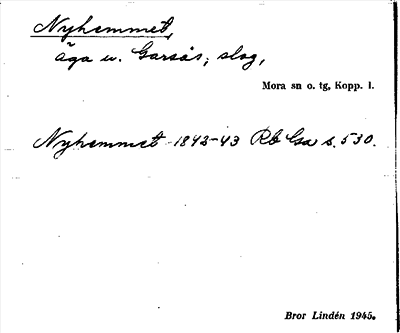 Nyhemmet,
äga u. Garsås, slog,
Mora sn o. tg, Kopp. l.
Nyhemmet 1842-43 Rb Csa s. 530.
Bror Lindén 1945.